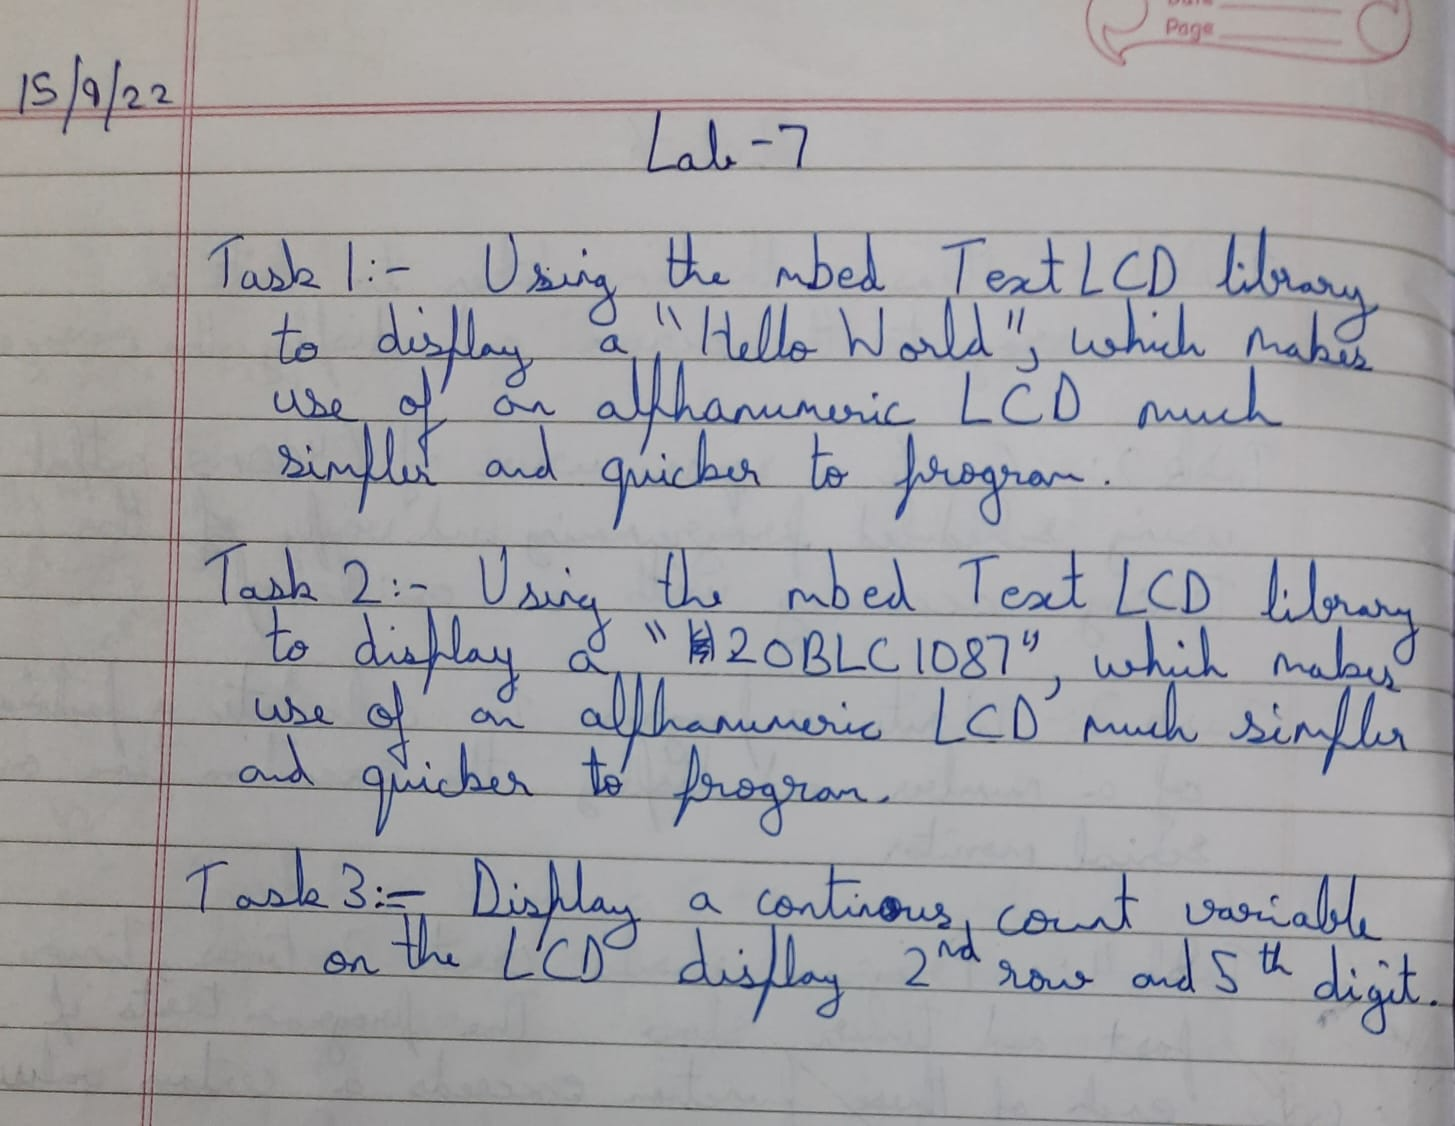 Page
15/9/22
Lab-7
Task 1:- Using the mbed TextLCD library
to display a "Hello World", which makes
use of an alphanumeric LCD much
simpler and quicker to program.
Task 2:- Using the mbed TextLCD library
to display a "20BLC1087", which makes
use of an alphanumeric LCD much simpler
and quicker to program.
Task 3:- Display a continous count variable
on the LCD display 2nd row and 5th digit.